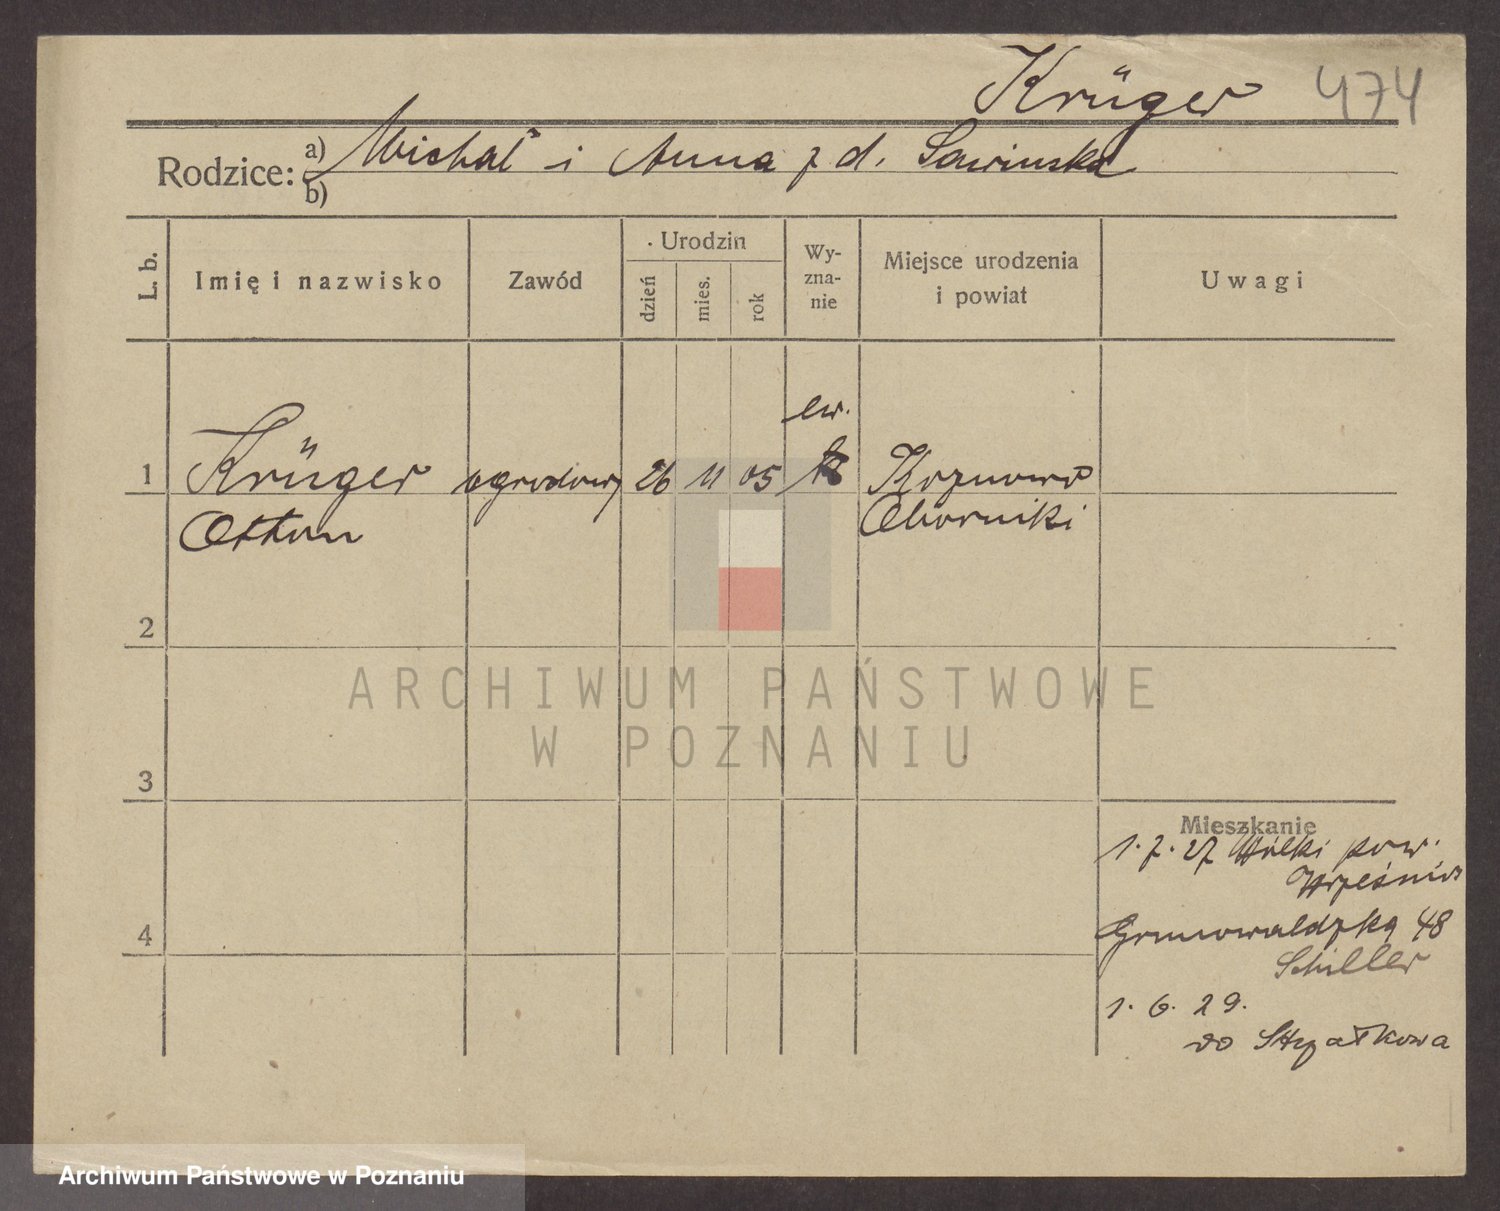 Krüger 474
Rodzice: a) Michał i Anna z d. Sawinska
b)
L. b. Imię i nazwisko Zawód Urodzin dzień mies. rok Wy-zna-nie Miejsce urodzenia i powiat Uwagi
ew.
1 Krüger ogrodowy 26 11 05 Koznowo
Otton Oborniki
2
3
4
Mieszkanie
1. 7. 27 Wólki pow.
Września
Grunwaldzka 48
Schiller
1. 6. 29.
do Strzałkowa
ARCHIWUM PAŃSTWOWE
W POZNANIU
Archiwum Państwowe w Poznaniu